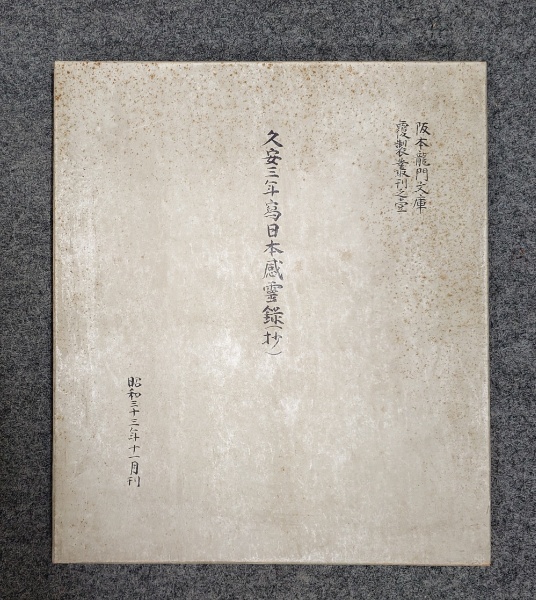 阪本龍門文庫
覆製叢刊之壹
久安三年寫日本感靈録(抄)
昭和三十三年十一月刊